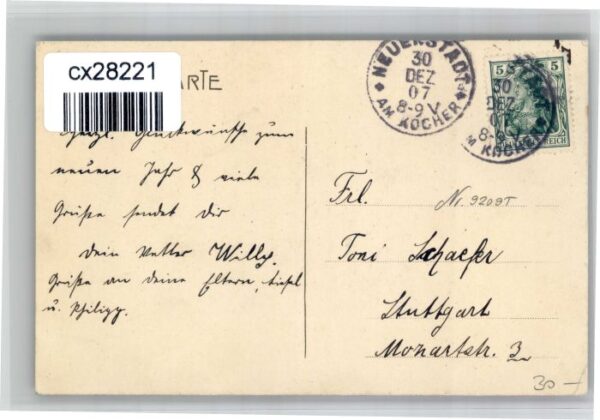 cx28221
KARTE
Herzl. Glückwünsche zum
neuen Jahr & viele
Grüße sendet dir
dein Vetter Willy.
Grüße an deine Eltern,
u. Philipp.
NEUENSTADT
30
DEZ
07
8-9 V.
AM KOCHER
5 5
30
DEZ
07
8-9
M KOCHER
REICH
Frl.
Nr. 9209T
Toni Schaefer
Stuttgart
Mozartstr. 3
30 –